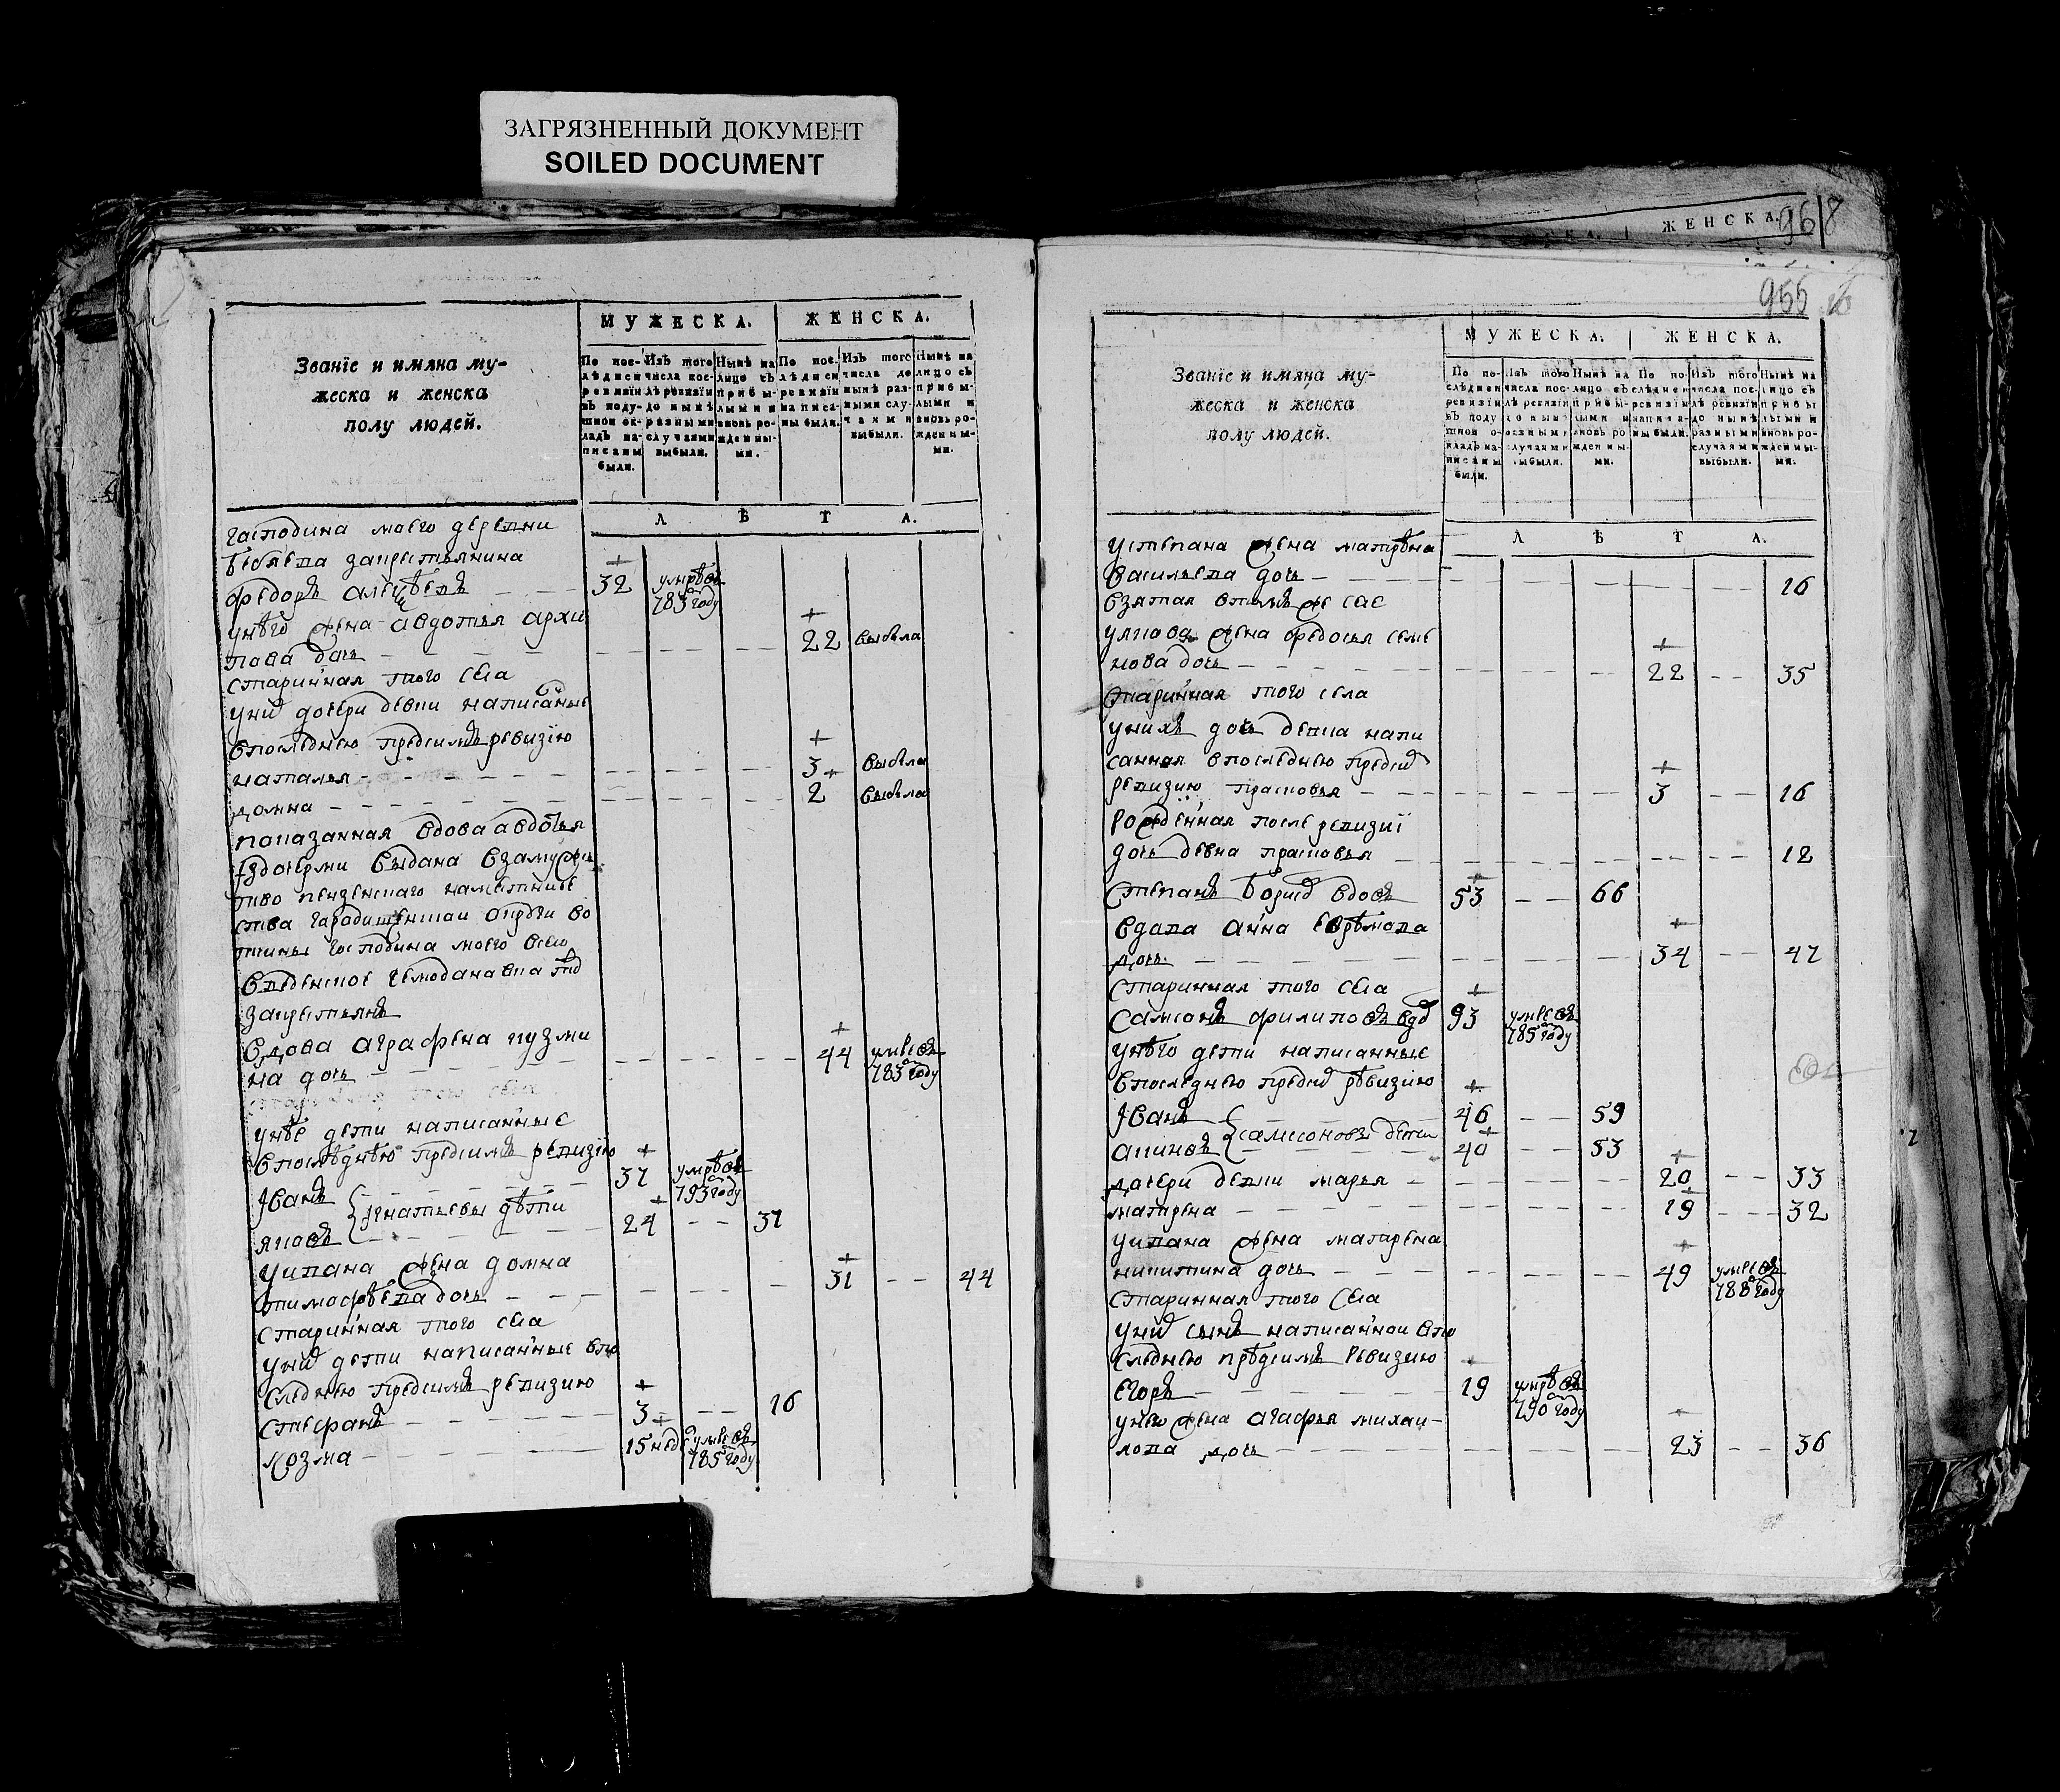 ЗАГРЯЗНЕННЫЙ ДОКУМЕНТ
SOILED DOCUMENT
Званїе и имяна му-
жеска и женска
полу людей.
МУЖЕСКА. ЖЕНСКА.
По последней ревизїи въ подушной окладъ написаны были.
Изъ того числа после ревизїи до нынѣ разными случаями выбыли.
Нынѣ на лицо съ прибылыми и вновь рожденными.
По последней ревизїи написаны были.
Изъ того числа до нынѣ разными случаями выбыли.
Нынѣ на лицо съ прибылыми и вновь рожденными.
Л Ѣ Т А.
гасподина моего деревни
заикрестьянина
федоръ 32 умрѣ въ 783 году
унѣго жена авдотья архи
пова дочь 22 выбыла
старинная того села
уних дочери девки написаные
впоследнею предсимъ ревизїю
наталья 3 выбыла
домна 2 выбыла
показанная вдова авдотья
здочерми выдана взамуже
тво пензенскаго наместниче
ства гарадищенскои округи во
тчины господина моего
закрестьянъ
вдова аграфена кузми
на дочь 44 умре въ 783 году
унѣе дети написанные
впослѣднѣю предсимъ ревизїю
Iванъ 37 умрѣ въ 793 году
игнатьевы дѣти
яковъ 24 37
уивана жена домна
тимофѣева дочь 31 44
старинная того села
уних дети написанные впо
следнею предсимъ ревизию
стефанъ 3 16
козма 15 нед умре въ 785 году
968
955
ЖЕНСКА.
Званїе и имяна му-
жеска и женска
полу людей.
МУЖЕСКА. ЖЕНСКА.
По последней ревизїи въ подушной окладъ написаны были.
Изъ того числа после ревизїи до нынѣ разными случаями выбыли.
Нынѣ на лицо съ прибылыми и вновь рожденными.
По последней ревизїи написаны были.
Изъ того числа после ревизїи до нынѣ разными случаями выбыли.
Нынѣ на лицо съ прибылыми и вновь рожденными.
Л Ѣ Т А.
устепана жена матрѣна
васильева дочь 16
взятая втомъ же селе
уякова жена федосья семе
нова дочь 22 35
старинная того села
унихъ дочь девка напи
санная впоследнею предсим
ревизию прасковья 3 16
рожденная после ревизиї
дочь девка прасковья 12
степанъ вдовъ 53 66
вдова анна ефрѣмова
дочь 34 47
старинная того села
самсонъ филиповъ вдов 93 умре въ 785 году
унѣго дети написанные
впоследнею предсим рѣвизию
Iванъ 46 59
самсоновы дети
40 53
дочери девки марья 20 33
матрена 19 32
уивана жена матрена
никитина дочь 49 умре въ 788 году
старинная того села
уних сынъ написаннои впо
следнею прѣдсимъ ревизию
егоръ 19 умрѣ въ 790 году
унего жена агафья михаи-
лова дочь 23 36